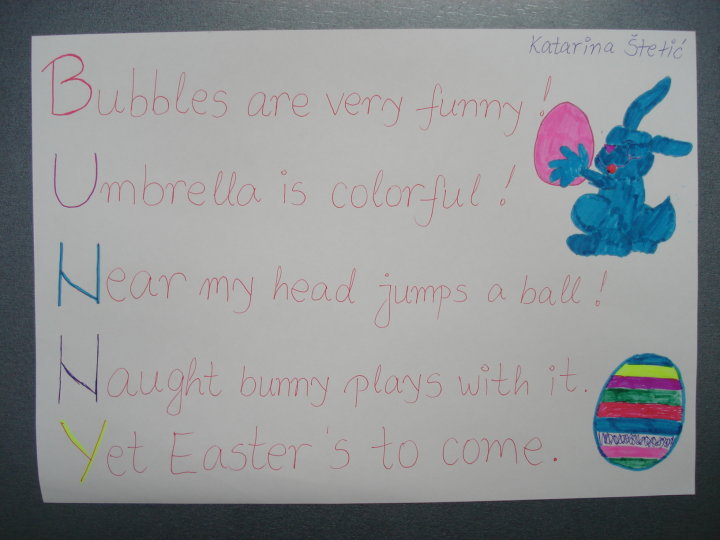 Katarina Štetić
Bubbles are very funny!
Umbrella is colorful!
Near my head jumps a ball!
Naught bunny plays with it.
Yet Easter's to come.